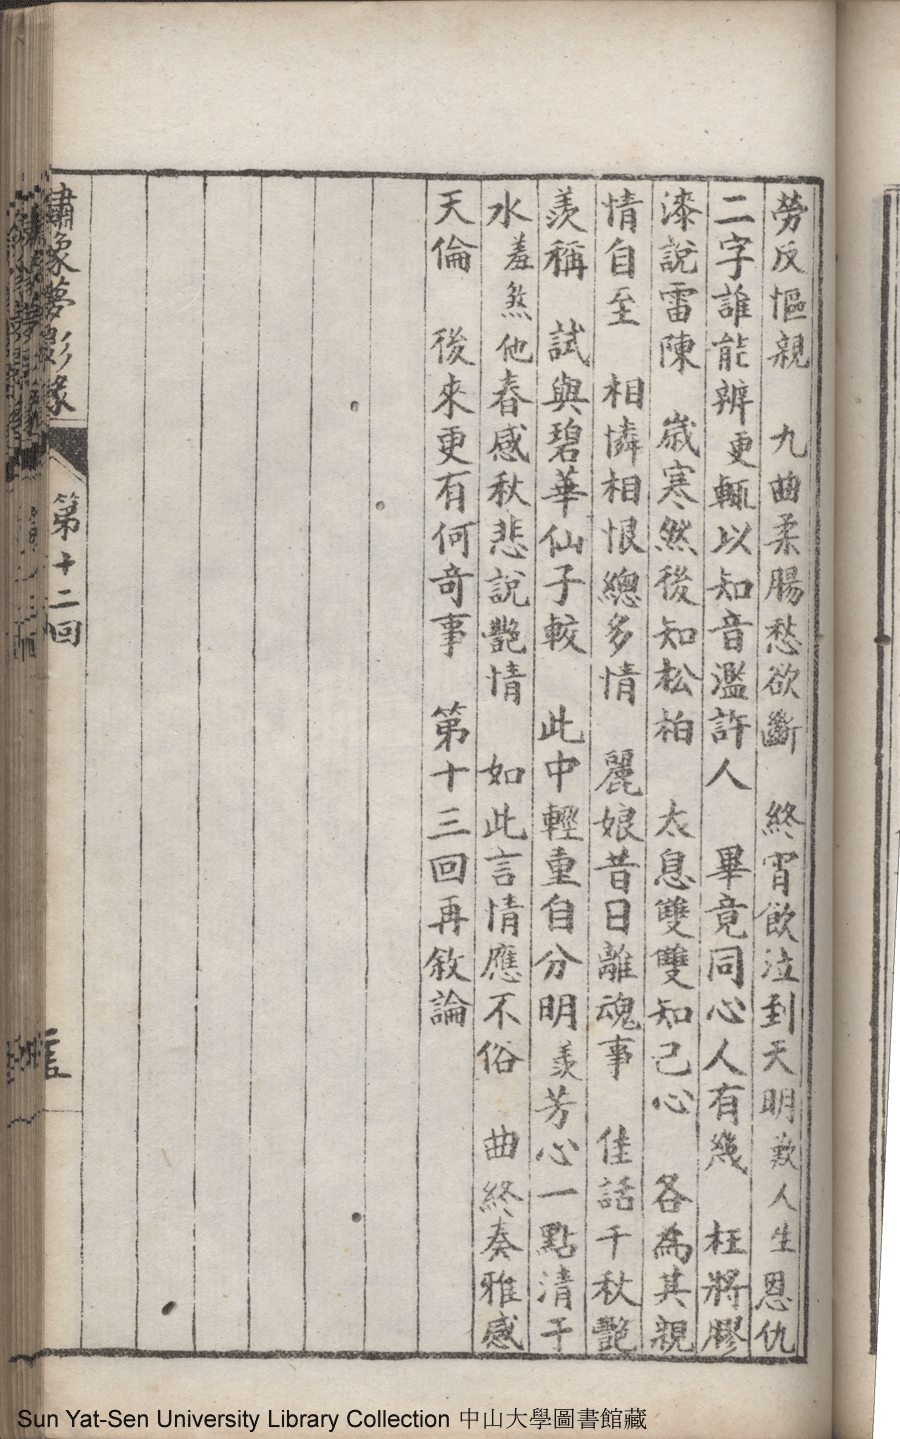 勞反慪親　九曲柔腸愁欲斷　終宵飲泣到天明歎人生恩仇
二字誰能辨更輒以知音濫許人　畢竟同心人有幾　枉將膠
漆說雷陳　歲寒然後知松柏　太息雙雙知己心　各為其親
情自至　相憐相恨總多情　麗娘昔日離魂事　佳話千秋艷
羨稱　試與碧華仙子較　此中輕重自分明羨芳心一點清于
水羞煞他春感秋悲說艷情　如此言情應不俗　曲終奏雅感
天倫　後來更有何奇事　第十三回再敘論
繡像夢影緣
第十二回
Sun Yat-Sen University Library Collection 中山大學圖書館藏